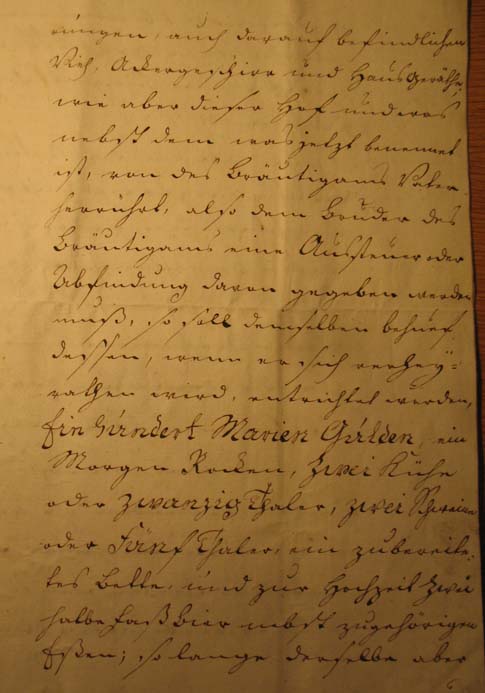 rungen, auch darauf befindlichen
Vieh, Ackergeschirr und Hausgeräthe,
wie aber dieser Hof und was
nebst dem was jetzt benennet
ist, von des Bräutigams Vater
herrührt, also dem Bruder des
Bräutigams eine Aussteuer oder
Abfindung davon gegeben werden
muß, so soll demselben behuef
dessen, wenn er sich verhey=
rathen wird, entrichtet werden,
Ein Hundert Marien Gulden, ein
Morgen Rocken, Zwei Kühe
oder Zwanzig Thaler, zwei Schweine
oder Fünf Thaler, ein zubereite=
tes Bette, und zur Hochzeit Zwei
halbe Faß Bier nebst zugehörigen
Eßen; so lange derselbe aber